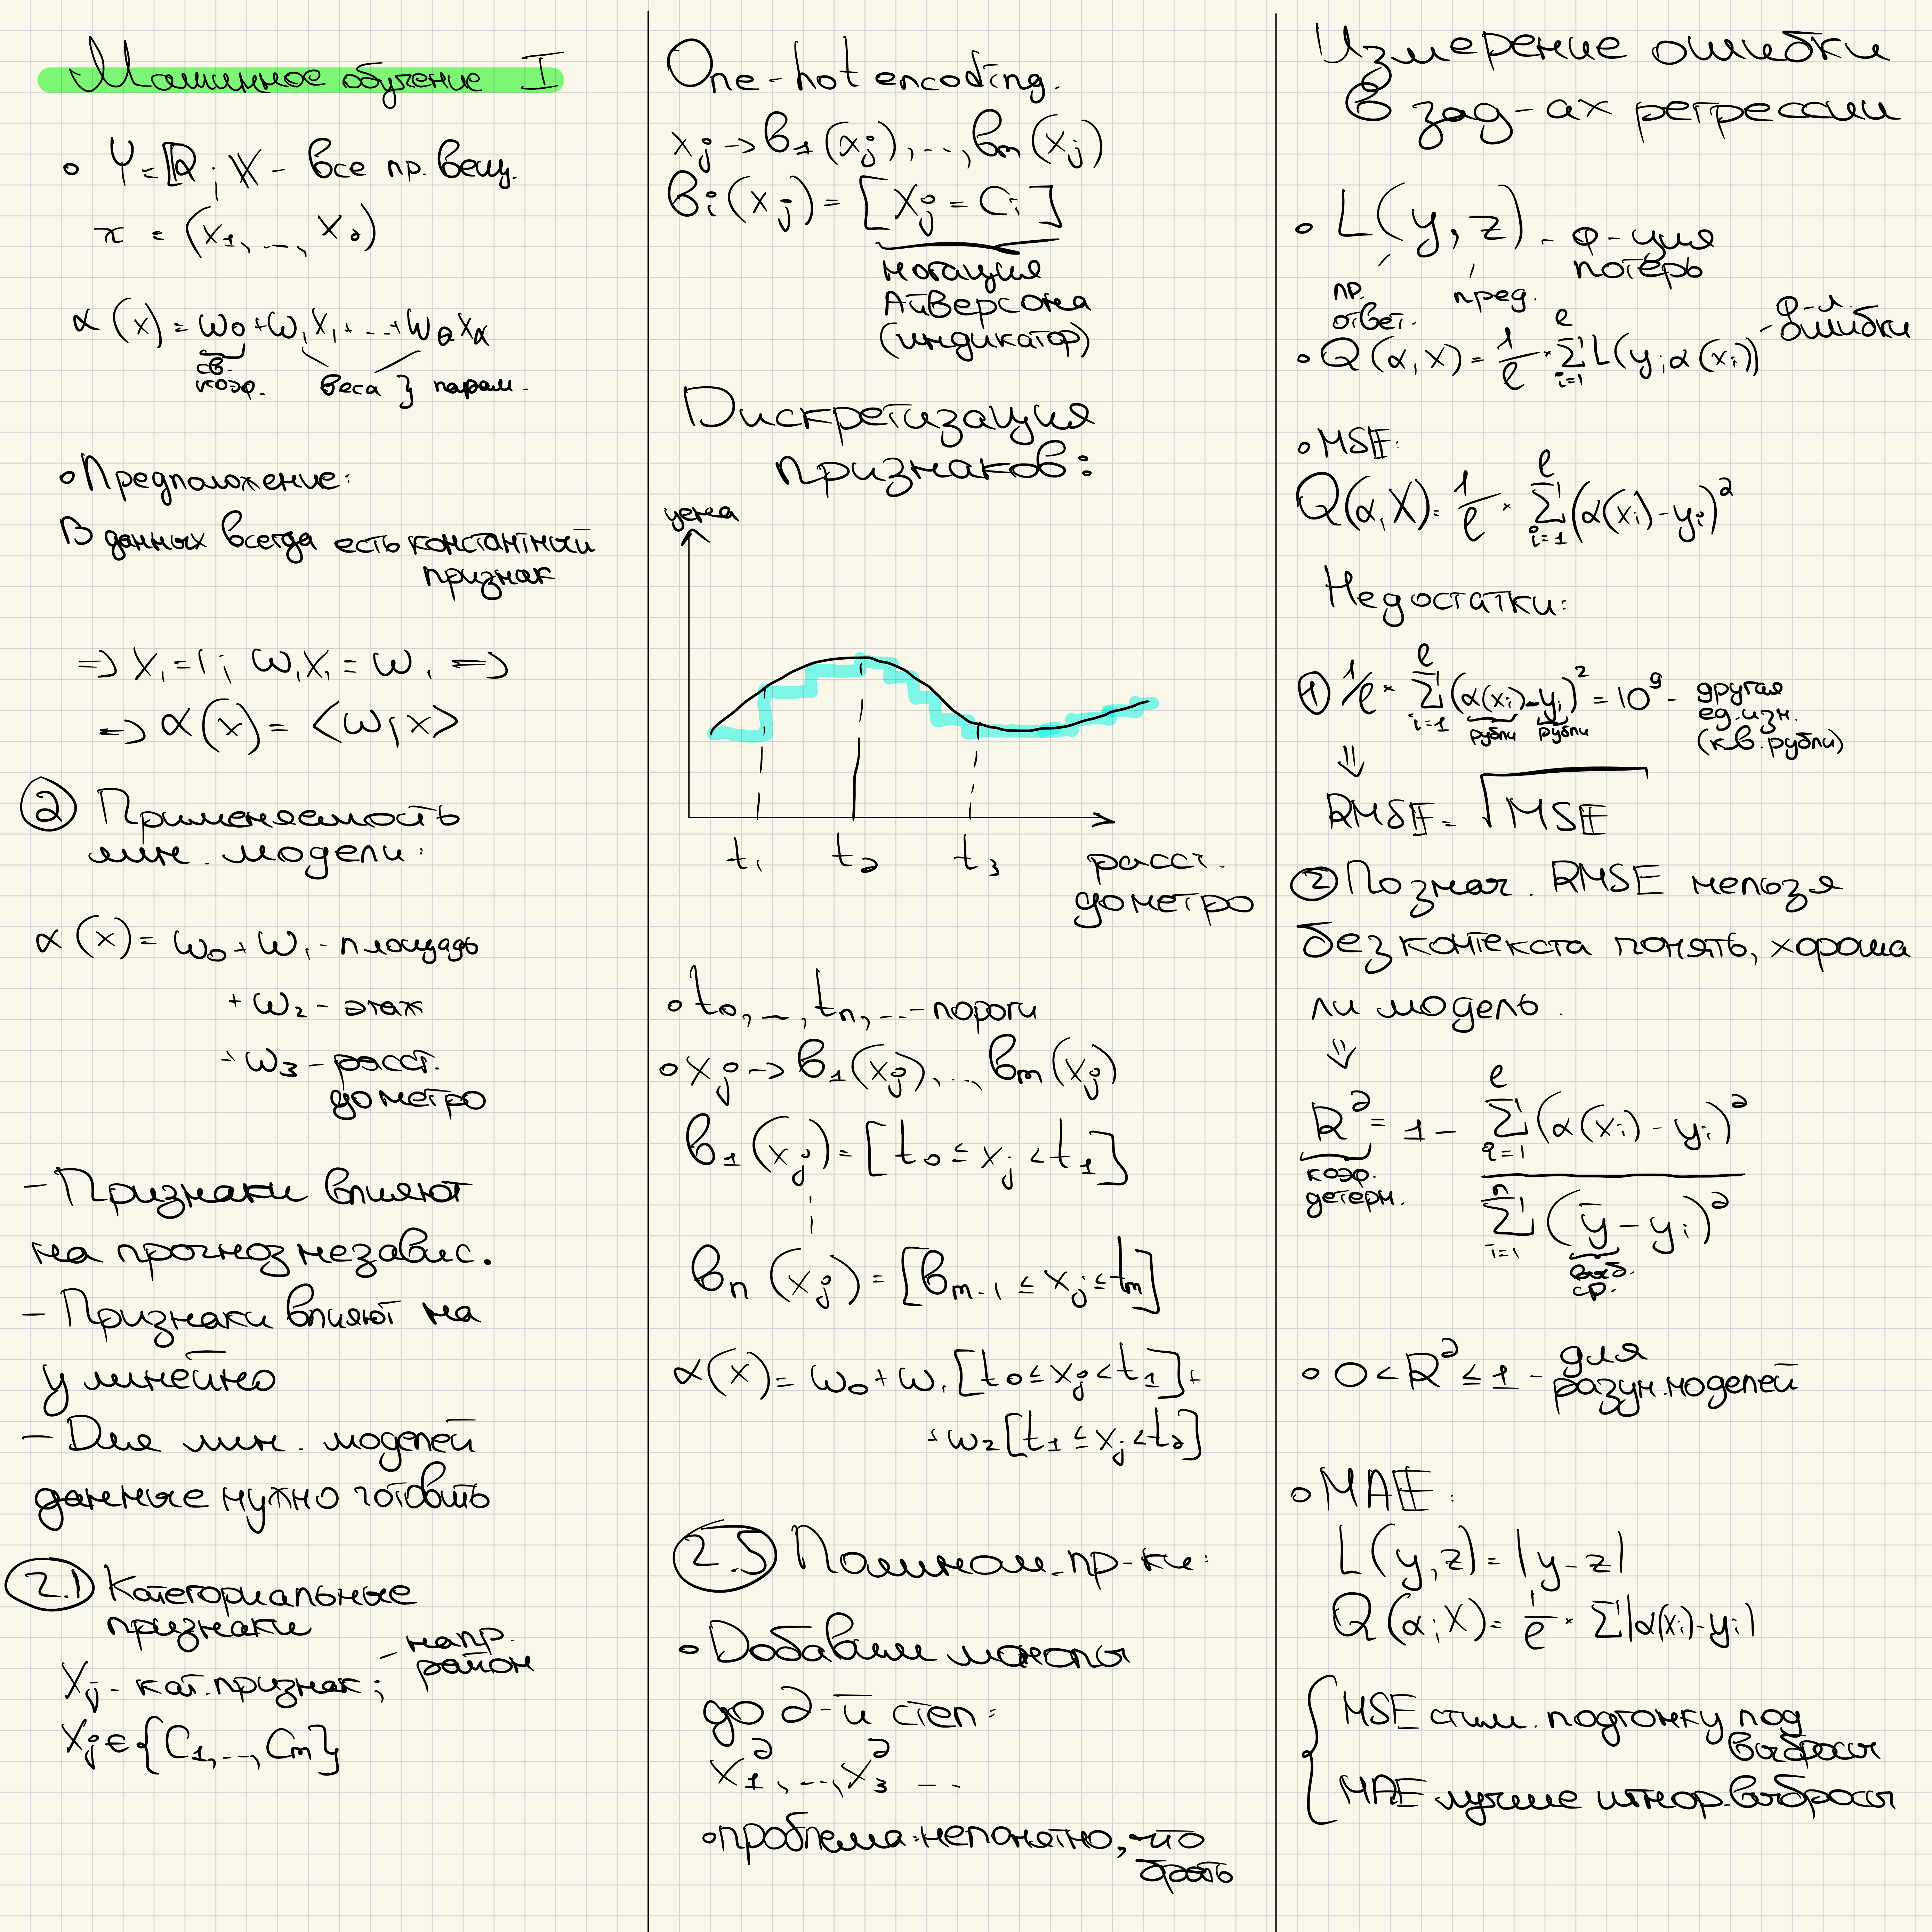 Машинное обучение I
• Y = ℝ; X - все пр. вещ.
x = (x₁, ..., x_d)
α(x) = w₀ + w₁x₁ + ... + w_d x_d
св. коэф.
веса } парам.
• Предположение:
В данных всегда есть константный
признак
=> x₁ = 1; w₁x₁ = w₁ =>
=> α(x) = <w, x>
② Применяемость
лин. модели:
α(x) = w₀ + w₁ - площадь
+ w₂ - этаж
+ w₃ - расст.
до метро
- Признаки влияют
на прогноз независ.
- Признаки влияют на
y линейно
- Для лин. моделей
данные нужно готовить
2.1 Категориальные
признаки
- напр.
район
Xj - кат. признак;
Xj ∈ {C₁, ..., Cm}
One-hot encoding.
xj -> b₁(xj), ..., bm(xj)
bi(xj) = [xj = Ci]
нотация
Айверсона
(индикатор)
Дискретизация
признаков:
цена
t₁ t₂ t₃
расст.
до метро
• t₀, ..., tn, ... - пороги
• xj -> b₁(xj), ..., bm(xj)
b₁(xj) = [t₀ ≤ xj < t₁]
bn(xj) = [bm-1 ≤ xj ≤ tm]
α(x) = w₀ + w₁[t₀ ≤ xj < t₁] +
+ w₂[t₁ ≤ xj < t₂]
2.5 Полином. пр-ки:
• Добавим
до 2-й степ:
x₁², ..., x₃² ...
• проблема: непонятно, что
брать
Измерение ошибки
в зад-ах регрессии
• L(y, z) - ф-ция
потерь
пр.
ответ.
пред.
• Q(α, X) = 1/ℓ × Σᵢ₌₁^ℓ L(y; α(xi)) - ф-л.
ошибки
• MSE:
Q(α, X) = 1/ℓ × Σᵢ₌₁^ℓ (α(xi) - yi)²
Недостатки:
① 1/ℓ × Σᵢ₌₁^ℓ (α(xi) - yi)² = 10⁹ - другая
ед. изм.
(кв. рубли)
рубли рубли
⇓
RMSE = √MSE
② По знач. RMSE нельзя
без контекста понять, хороша
ли модель.
⇓
R² = 1 - Σ₌₁^ℓ (α(xi) - yi)² / Σᵢ₌₁ⁿ (ȳ - yi)²
коэф.
детерм.
выб.
ср.
• 0 < R² ≤ 1 - для
разум. моделей
• MAE:
L(y, z) = |y - z|
Q(α; X) = 1/ℓ × Σ|α(xi) - yi|
MSE стим. подгонку под
выбросы
MAE лучше игнор. выбросы